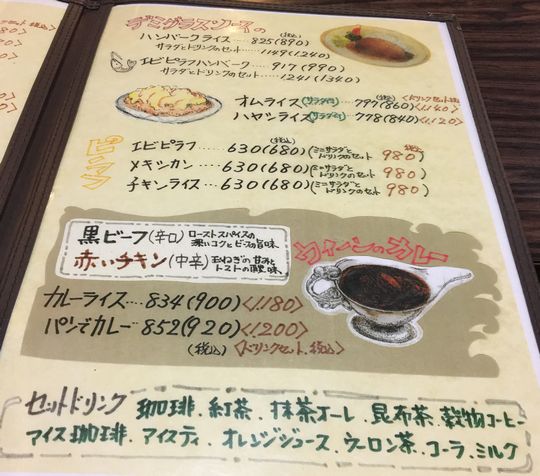 デミグラスソースの
ハンバーグライス…825(890)(税込)
サラダとドリンクのセット…1149(1240)
エビピラフハンバーグ…917(990)
サラダとドリンクのセット…1241(1340)
オムライス(サラダ付)…797(860)(税込)<ドリンクセット 税込><1140>
ハヤシライス(サラダ付)…778(840)<1120>
ピラフ
エビピラフ…630(680)(税込)(ミニサラダとドリンクのセット 980)税込
メキシカン…630(680)(ミニサラダとドリンクのセット 980)
チキンライス…630(680)(ミニサラダとドリンクのセット 980)
黒ビーフ(辛口) ローストスパイスの深いコクとビーフの旨味
赤いチキン(中辛) 玉ねぎの甘みとトマトの酸味
カレー
カレーライス…834(900)<1180>
パンでカレー…852(920)<1200>
(税込)<ドリンクセット、税込>
セットドリンク 珈琲、紅茶、抹茶オーレ、昆布茶、穀物コーヒー
アイス珈琲、アイスティ、オレンジジュース、ウーロン茶、コーラ、ミルク